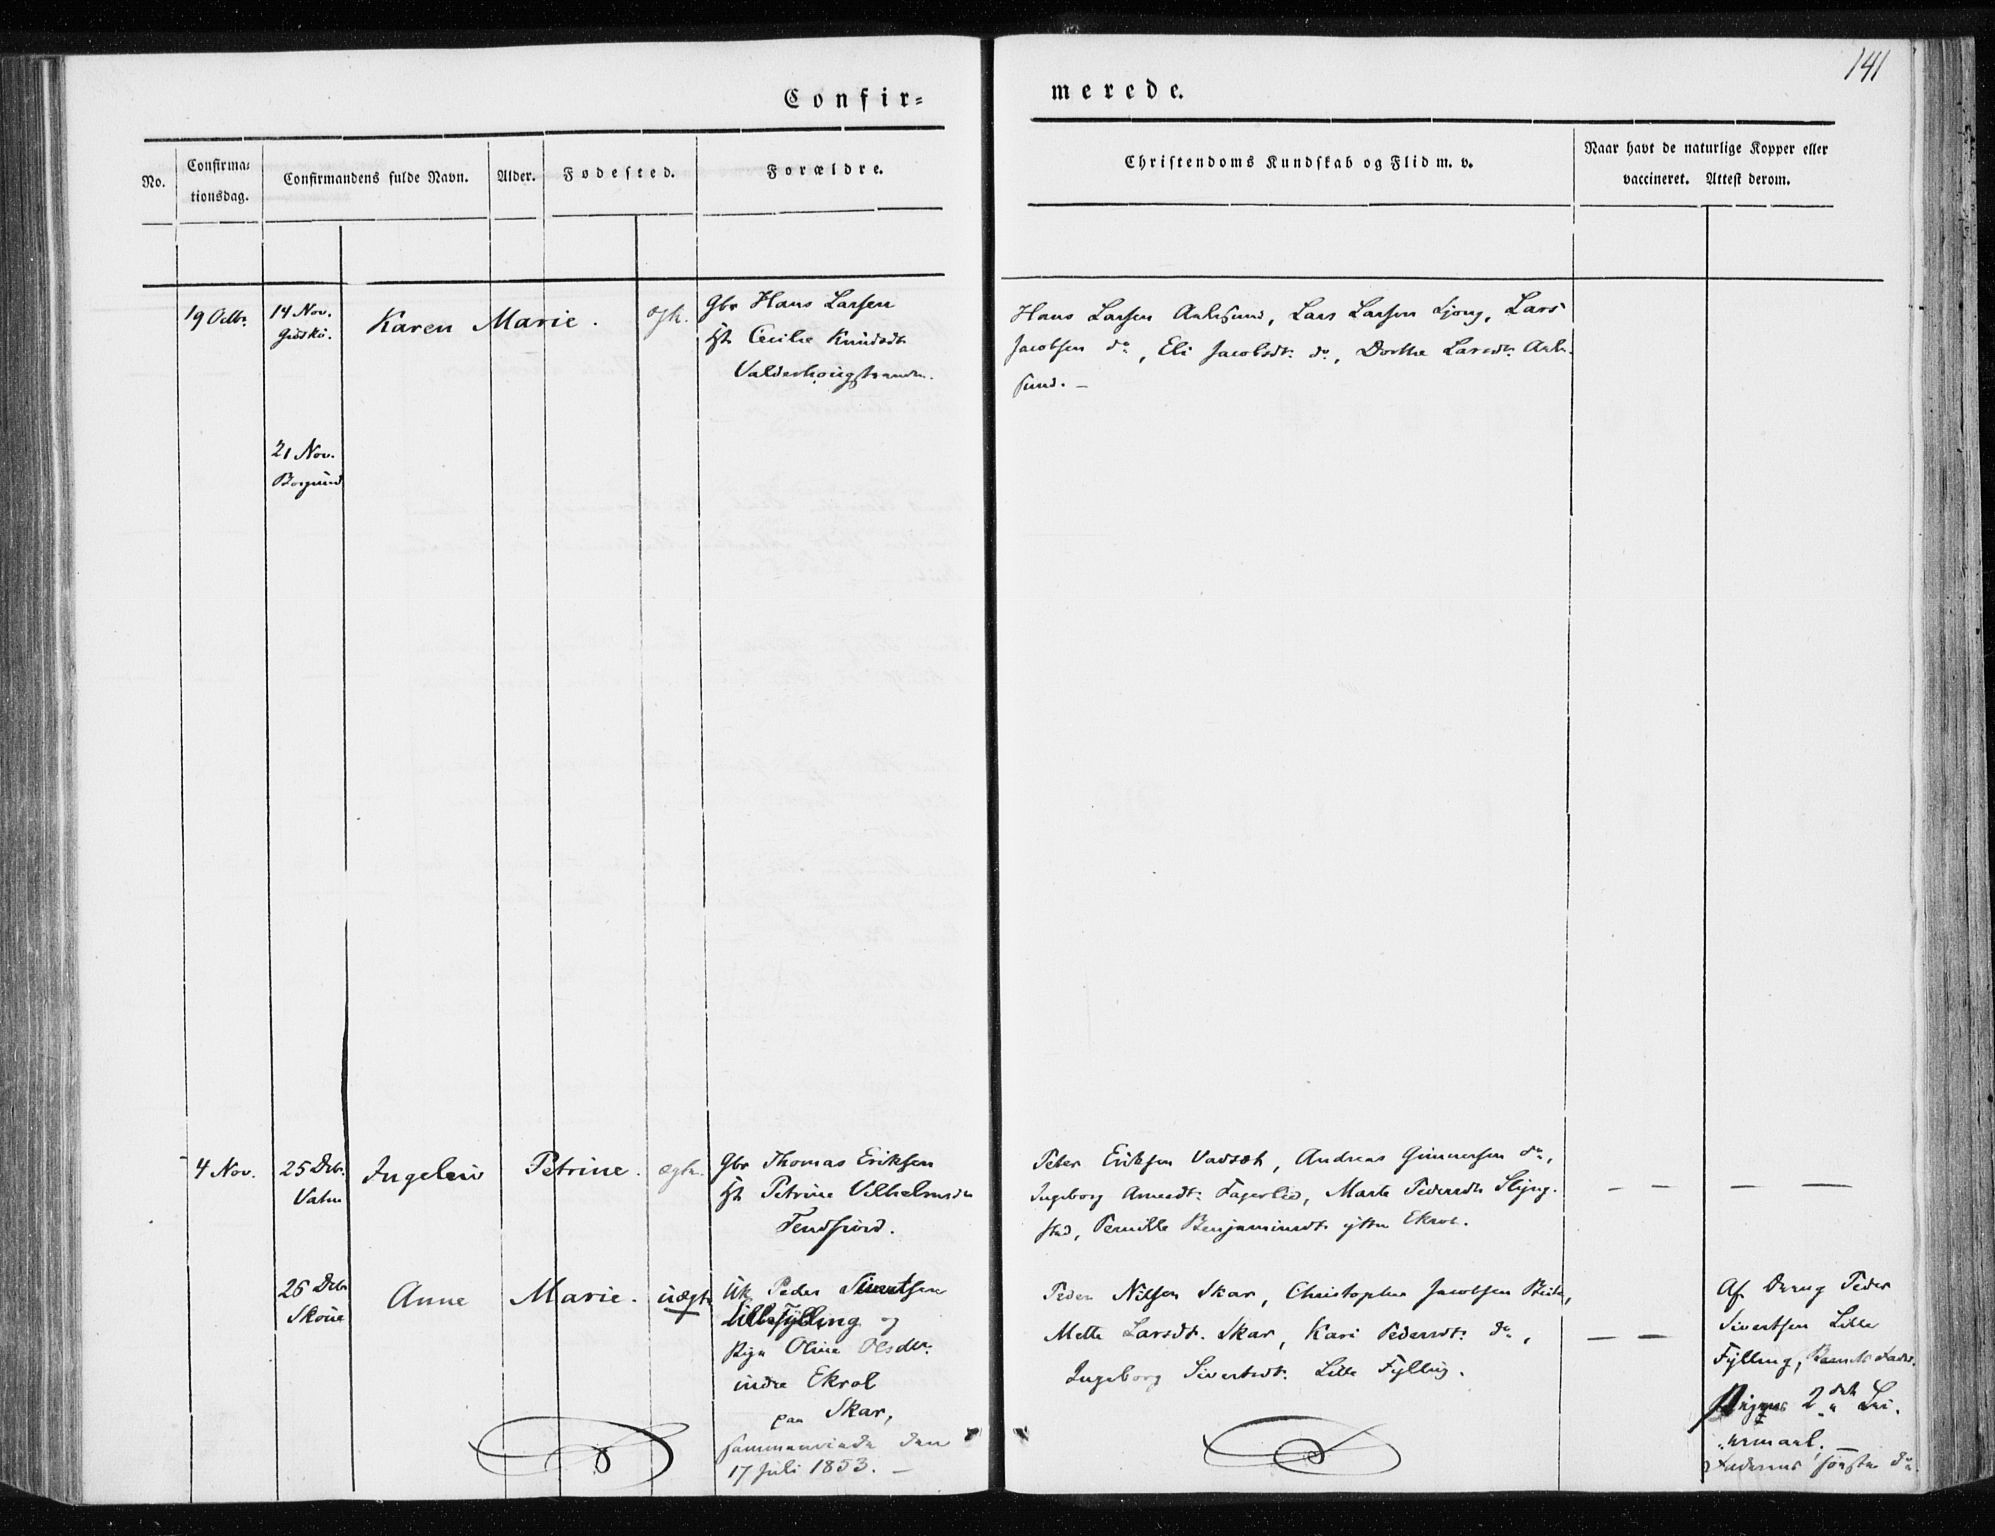 141
Confir=
merede.
No.
Confirma=
tionsdag.
Confirmandens fulde Navn.
Alder.
Fødested.
Forældre.
Christendoms Kundskab og Flid m. v.
Naar havt de naturlige Kopper eller
vaccineret. Attest derom.
19 Octbr.
14 Nov.
Giöskö.
Karen Marie.
Ægt.
Gbr Hans Larsen
Hst Cecilie Knudsdtr
Valderhougstranden.
Hans Larsen Aalesund, Lars Larsen Ljong, Lars
Jacobsen do, Eli Jacobsdtr do, Dorthe Larsdtr Aale-
sund. –
21 Nov.
Borgund
4 Nov.
25 Dcbr.
Vatne
Ingeleiv Petrine.
ægte.
Gbr Thomas Eriksen
Hst Petrine Vilhelmsdtr
Tendfjord.
Peter Eriksen Vadset, Andreas Gunnersen do,
Ingeborg Arnesdt. Fagerlied, Marte Pedersdtr Slyng-
stad, Pernille Benjaminsdt. ytre Ekrol.
– – – –
26 Dcbr
Skoue
Anne Marie.
uægte
Uk Peder Sivertsen
Lille Fylling og
Pige Oline Olsdtr.
indre Ekrol
paa Skar,
sammenviede den
17 Juli 1853. –
Peder Nilsen Skar, Christopher Jacobsen
Mette Larsdt. Skar, Kari Pedersdt. do,
Ingeborg Sivertsdt. Lille Fylling.
– –
Af Dreng Peder
Sivertsen Lille
Fylling, Barnets Fader.
Pigens 2det Lei-
ermaal.
Faderens første do